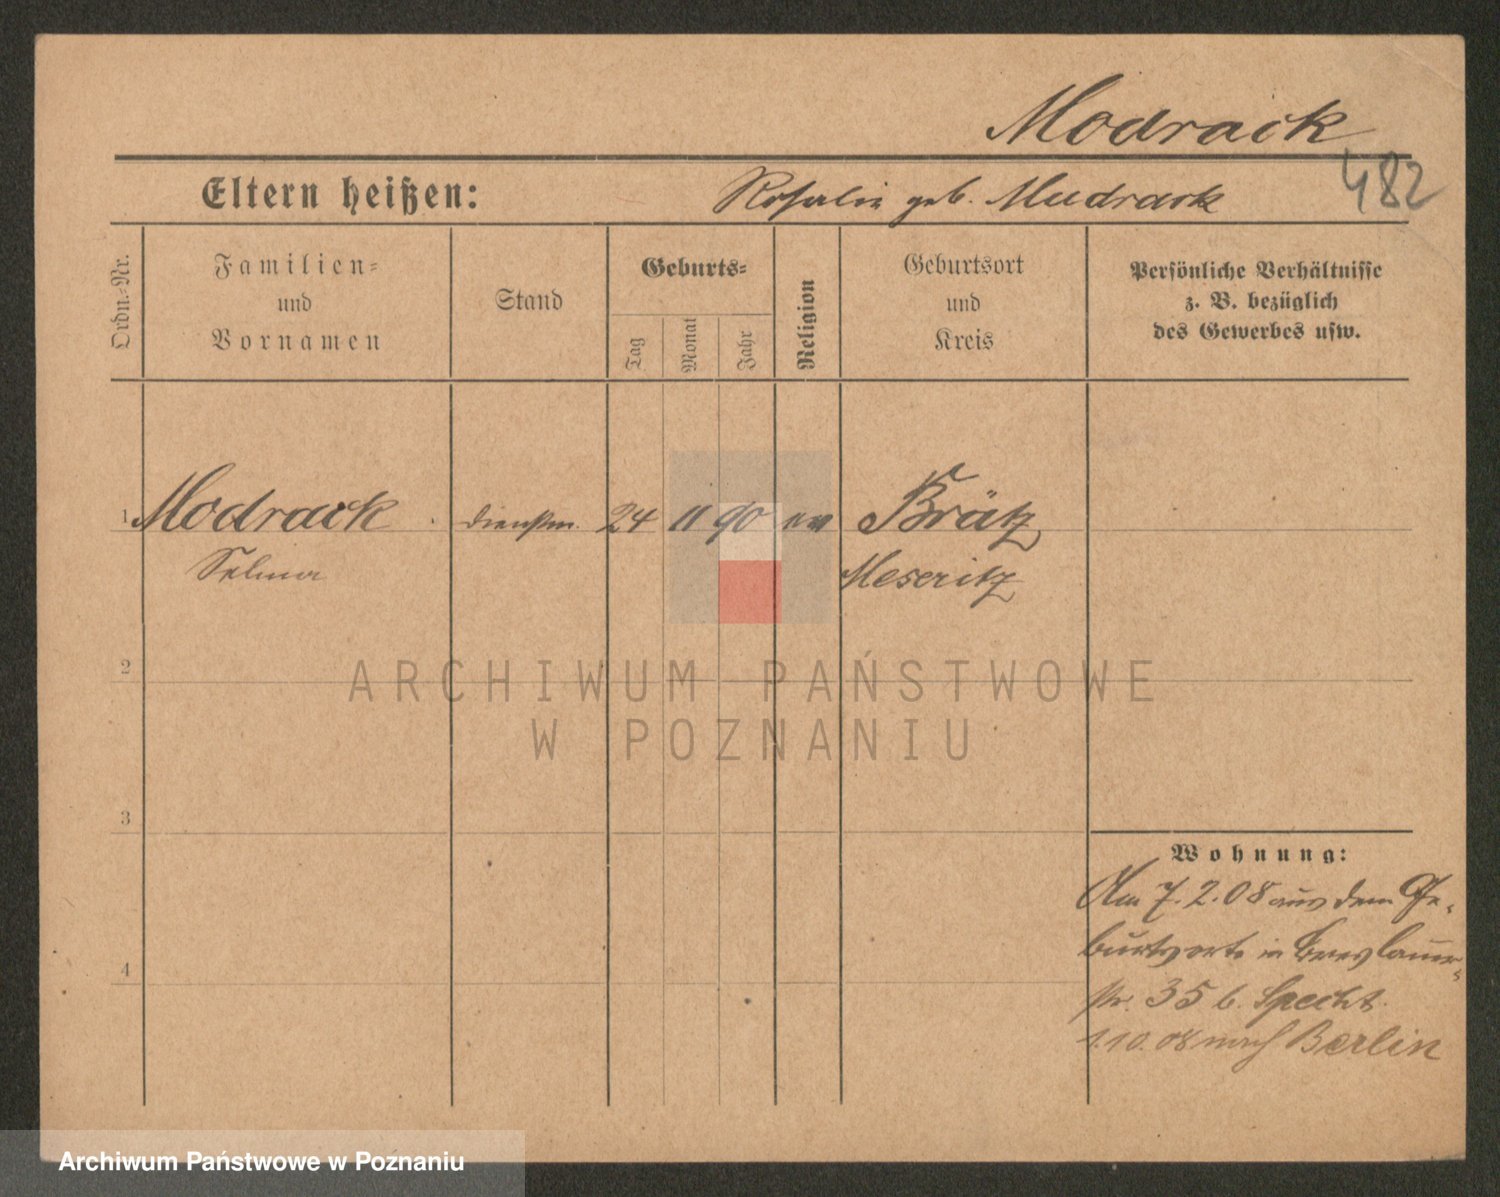 Modrack
482
Eltern heißen: Rosalie geb. Mudrack
Ordn.-Nr.
Familien-
und
Vornamen
Stand
Geburts-
Tag
Monat
Jahr
Religion
Geburtsort
und
Kreis
Persönliche Verhältnisse
z. B. bezüglich
des Gewerbes usw.
1 Modrack dienstm. 24 11 90 ev Brätz
Selma Meseritz
2
3
4
Wohnung:
Am 7.2.08 aus dem Ge-
burtsorte in Breslauer-
str. 35 b. Specht
1.10.08 nach Berlin
ARCHIWUM PAŃSTWOWE
W POZNANIU
Archiwum Państwowe w Poznaniu